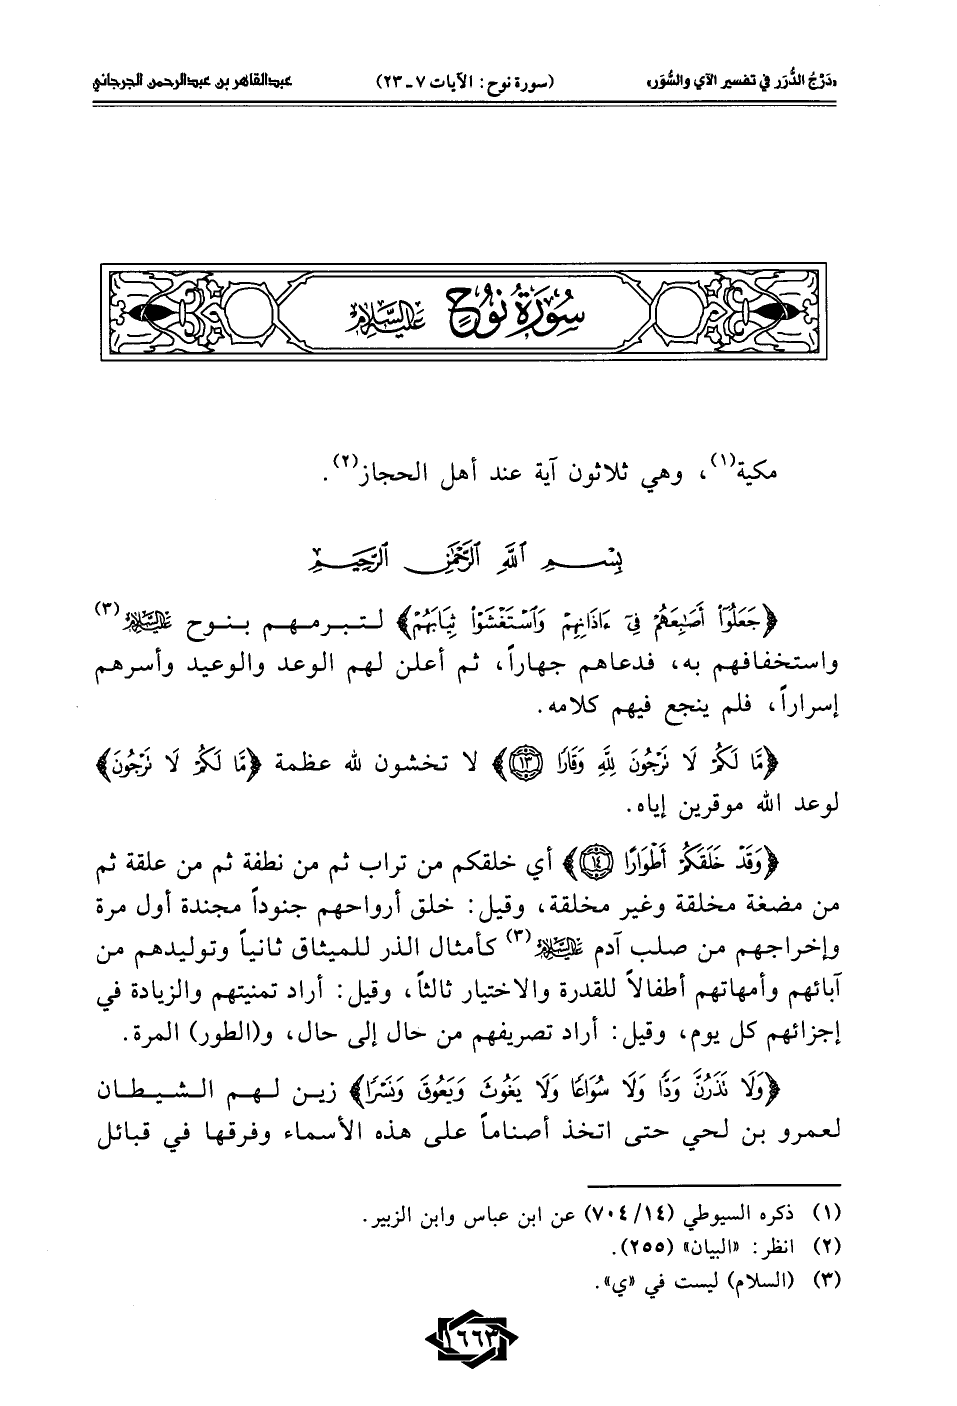 «دَرْجُ الدُّرَر في تفسير الآي والسُّوَر» (سورة نوح: الآيات ٧ ـ ٢٣) عبدالقاهر بن عبدالرحمن الجرجاني
سُورَةُ نُوحٍ عَلَيْهِ السَّلَام
مكية(١)، وهي ثلاثون آية عند أهل الحجاز(٢).
بِسْمِ ٱللَّهِ ٱلرَّحْمَٰنِ ٱلرَّحِيمِ
﴿جَعَلُوٓا۟ أَصَٰبِعَهُمْ فِىٓ ءَاذَانِهِمْ وَٱسْتَغْشَوْا۟ ثِيَابَهُمْ﴾ لتبرمهم بنوح عليه السلام(٣)
واستخفافهم به، فدعاهم جهاراً، ثم أعلن لهم الوعد والوعيد وأسرهم
إسراراً، فلم ينجع فيهم كلامه.
﴿مَّا لَكُمْ لَا نَرْجُونَ لِلَّهِ وَقَارًا ١٣﴾ لا تخشون لله عظمة ﴿مَّا لَكُمْ لَا نَرْجُونَ﴾
لوعد الله موقرين إياه.
﴿وَقَدْ خَلَقَكُمْ أَطْوَارًا ١٤﴾ أي خلقكم من تراب ثم من نطفة ثم من علقة ثم
من مضغة مخلقة وغير مخلقة، وقيل: خلق أرواحهم جنوداً مجندة أول مرة
وإخراجهم من صلب آدم عليه السلام(٣) كأمثال الذر للميثاق ثانياً وتوليدهم من
آبائهم وأمهاتهم أطفالاً للقدرة والاختيار ثالثاً، وقيل: أراد تمنيتهم والزيادة في
إجزائهم كل يوم، وقيل: أراد تصريفهم من حال إلى حال، و(الطور) المرة.
﴿وَلَا نَذَرُنَّ وَدًّا وَلَا سُوَاعًا وَلَا يَغُوثَ وَيَعُوقَ وَنَسْرًا﴾ زين لهم الشيطان
لعمرو بن لحي حتى اتخذ أصناماً على هذه الأسماء وفرقها في قبائل
(١) ذكره السيوطي (٧٠٤/١٤) عن ابن عباس وابن الزبير.
(٢) انظر: «البيان» (٢٥٥).
(٣) (السلام) ليست في «ي».
١٦٦٣